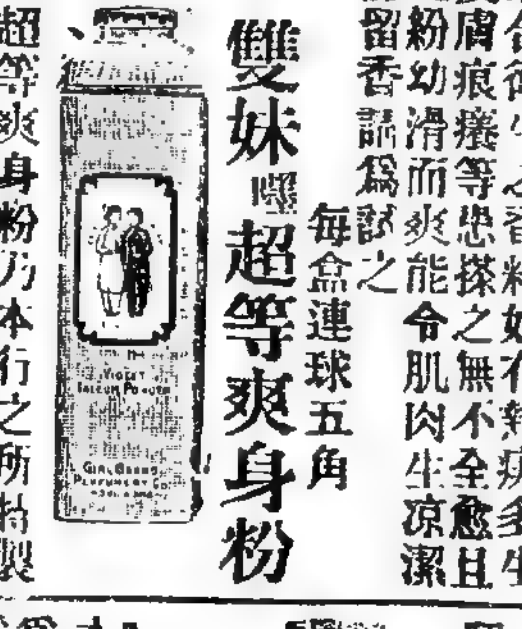 合衛生之香料如有熱痱多生
膚痕癢等患搽之無不全愈且
粉幼滑而爽能令肌肉生凉潔
留香請為試之
每盒連球五角
雙妹嘜超等爽身粉
VIOLET
TALCUM POWDER
GIRL BRAND
PERFUMERY CO.
超等爽身粉乃本行之所特製